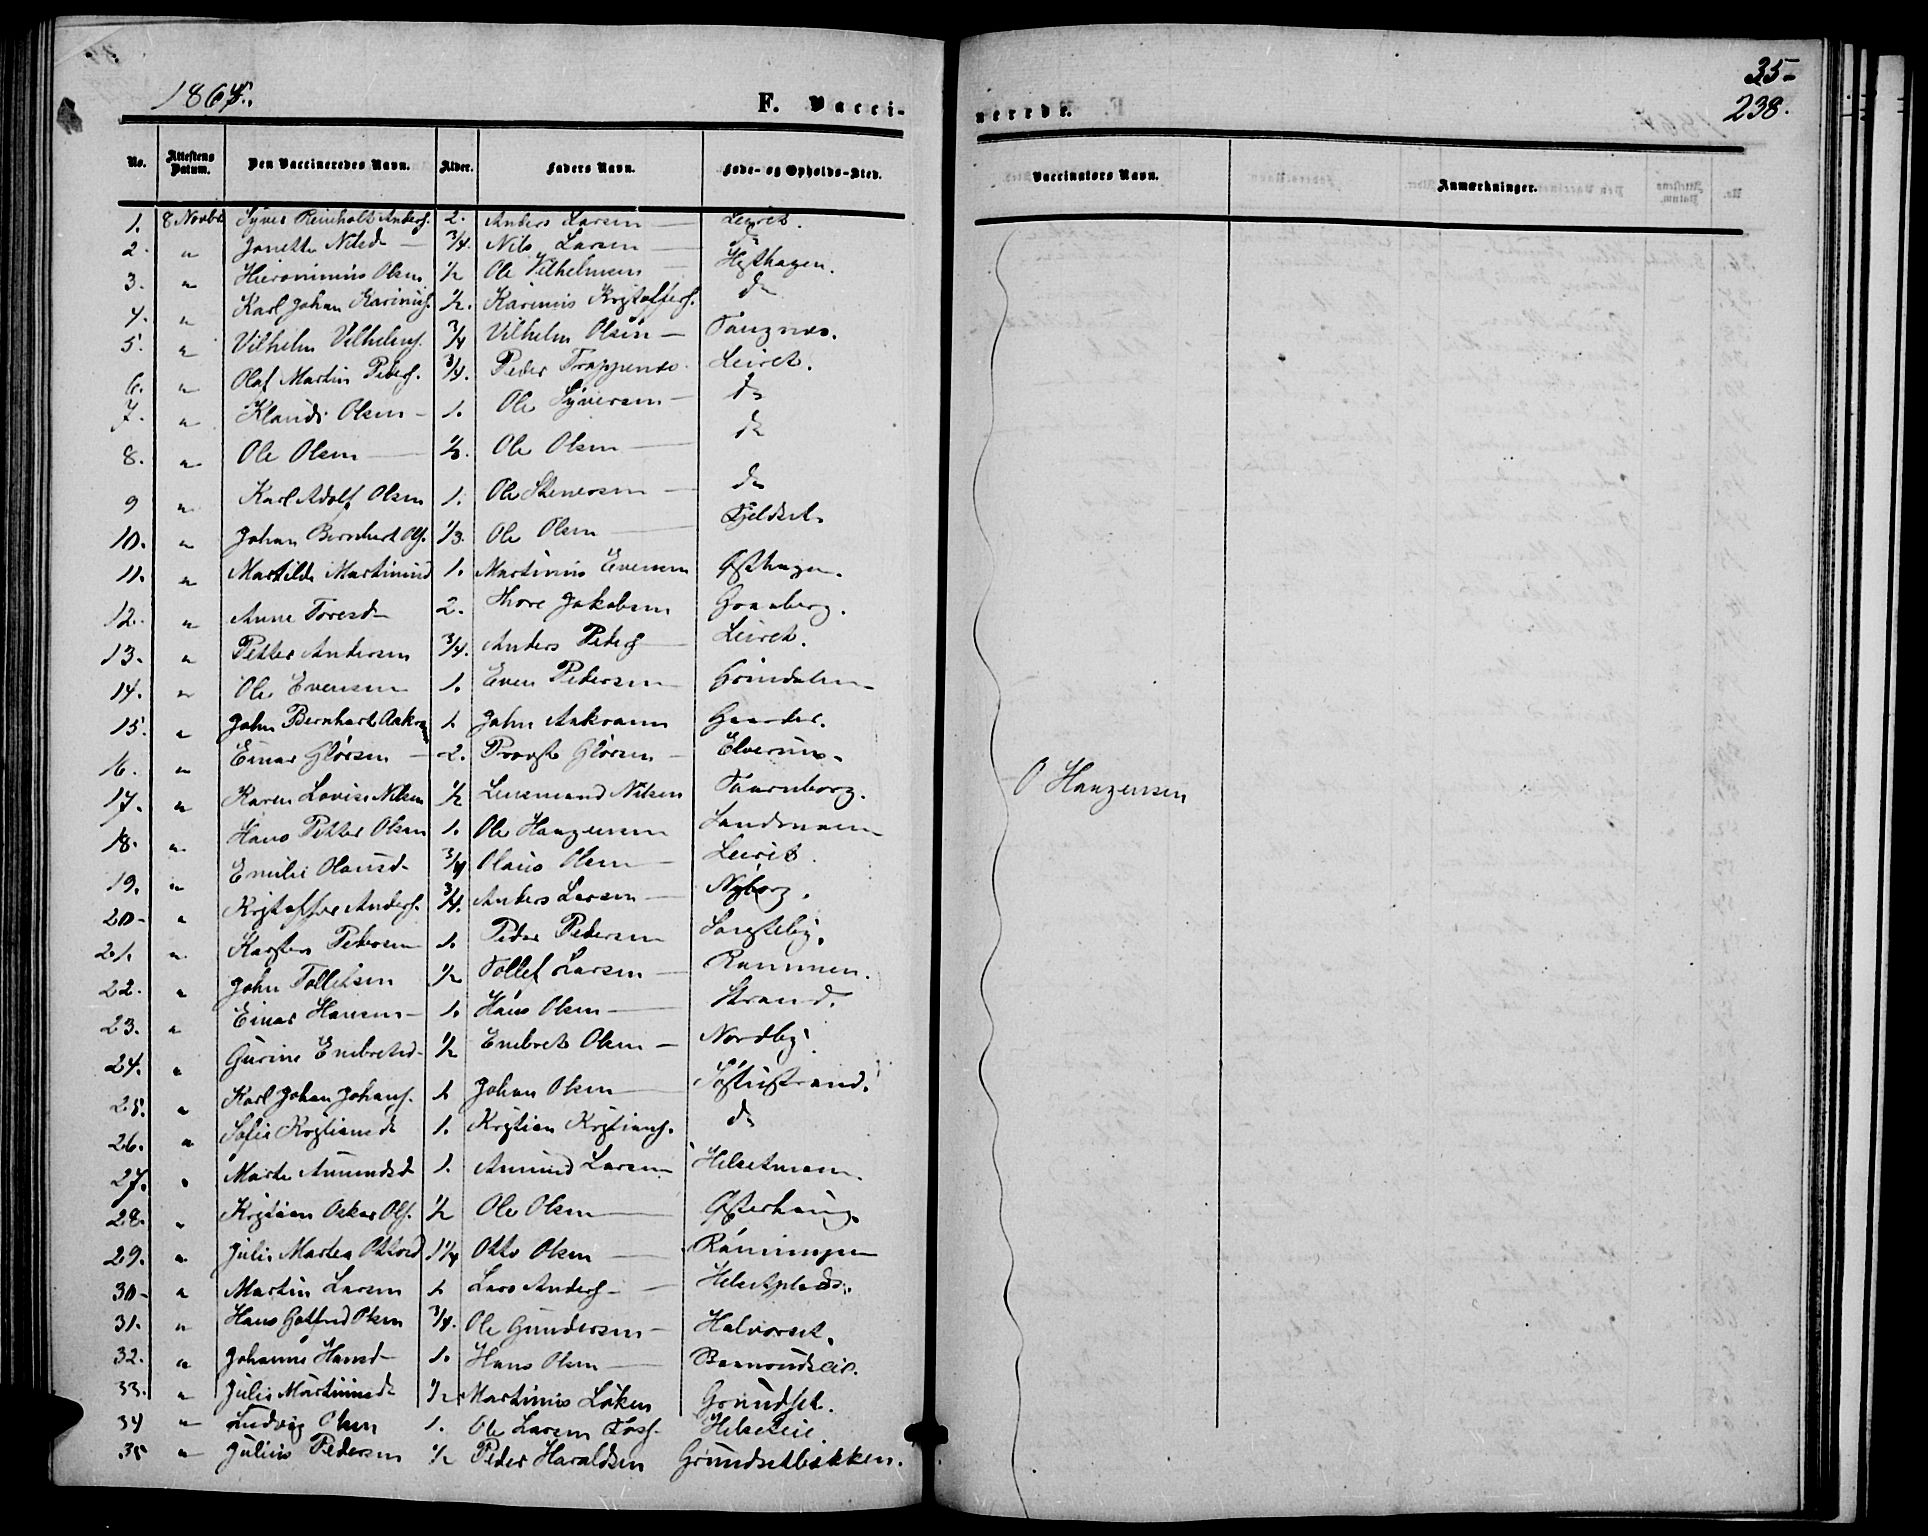 35-
238.
F. Vacci-
nerede.
No. Attestens Datum. Den Vaccineredes Navn. Alder. Faders Navn. Føde- og Opholds-Sted. Vaccinators Navn. Anmærkninger.
1. 8 Novbr Syver Reinholt Anders. 2. Anders Larsen — Leiret.
2. " Janette Nilsd — 3/4. Nils Larsen — do
3. " Hieronimus Olsen 1/2 Ole Vilhelmsen — Hysthagen.
4. " Karl Johan Karinius. 1/2. Karinius Kristoffers. do
5. " Vilhelm Vilhelms. 3/4 Vilhelm Olsen —
6. " Olaf Martin Peders. 3/4. Peder Trappenæs. Leiret.
7. " Klaudi Olsen — 1. Ole Syversen — do
8. " Ole Olsen — Ole Olsen — do
9 " Karl Adolf Olsen 1. Ole Stenersen — do
10. " Johan Bernhert Ols. 1/3. Ole Olsen — Fjeldset
11. " Martilde Martinusd 1. Martinus Evensen Østhagen.
12. " Anne Toresd 2. Thore Jakobsen Grønberg.
13. " Petter Andersen 3/4. Anders Peders — Leiret.
14. " Ole Evensen 1. Even Pedersen — Grindalen
15. " John Bernhart Aakra 1 John Aakrann Gaarder.
16. " Einar Glørsen — 2. Provst Glørsen — Elverum.
17. " Karen Lovise Nilsen 1/2 Lensmand Nilsen Taarnborg.
18. " Hans Petter Olsen 1. Ole Haagensen
19. " Emilie Olausd 3/4 Olaus Olsen — Leiret.
20- " Kristoffer Anders. 3/4. Anders Larsen — Nyborg.
21. " Karsten Pedersen 1. Peder Pedersen
22. " John Tollefsen 1/2 Tollef Larsen — Rammen.
23. " Einar Hansen — 1. Hans Olsen — Strand.
24. " Gurine Embretsd 1/2 Embret Olsen — Nordby.
25. " Karl Johan Johans. 1 Johan Olsen — Søstustrand.
26. " Sofie Kristiansd 1. Kristian Kristians. do
27. " Marte Amundsd 1. Amund Larsen Helsetmoen
28. " Kristian Oskar Ols. 1/2 Ole Olsen — Østerhaug.
29. " Julie Martea Ottosd 1 1/4 Otto Olsen — Rønningen
30- " Martin Larsen 1 Lars Anders — Helsetplads.
31. " Hans Gotfred Olsen 3/4. Ole Gundersen — Halvorset.
32. " Johanne Hansd — 1. Hans Olsen — Baanrudseie.
33. " Julie Martinusd 1/2 Martinus Løken Grundset.
34 " Ludvig Olsen 1. Ole Larsen Helseteie
35 " Julius Pedersen 1/2 Peder Haraldsen Grundsetbakken.
O Haagensen